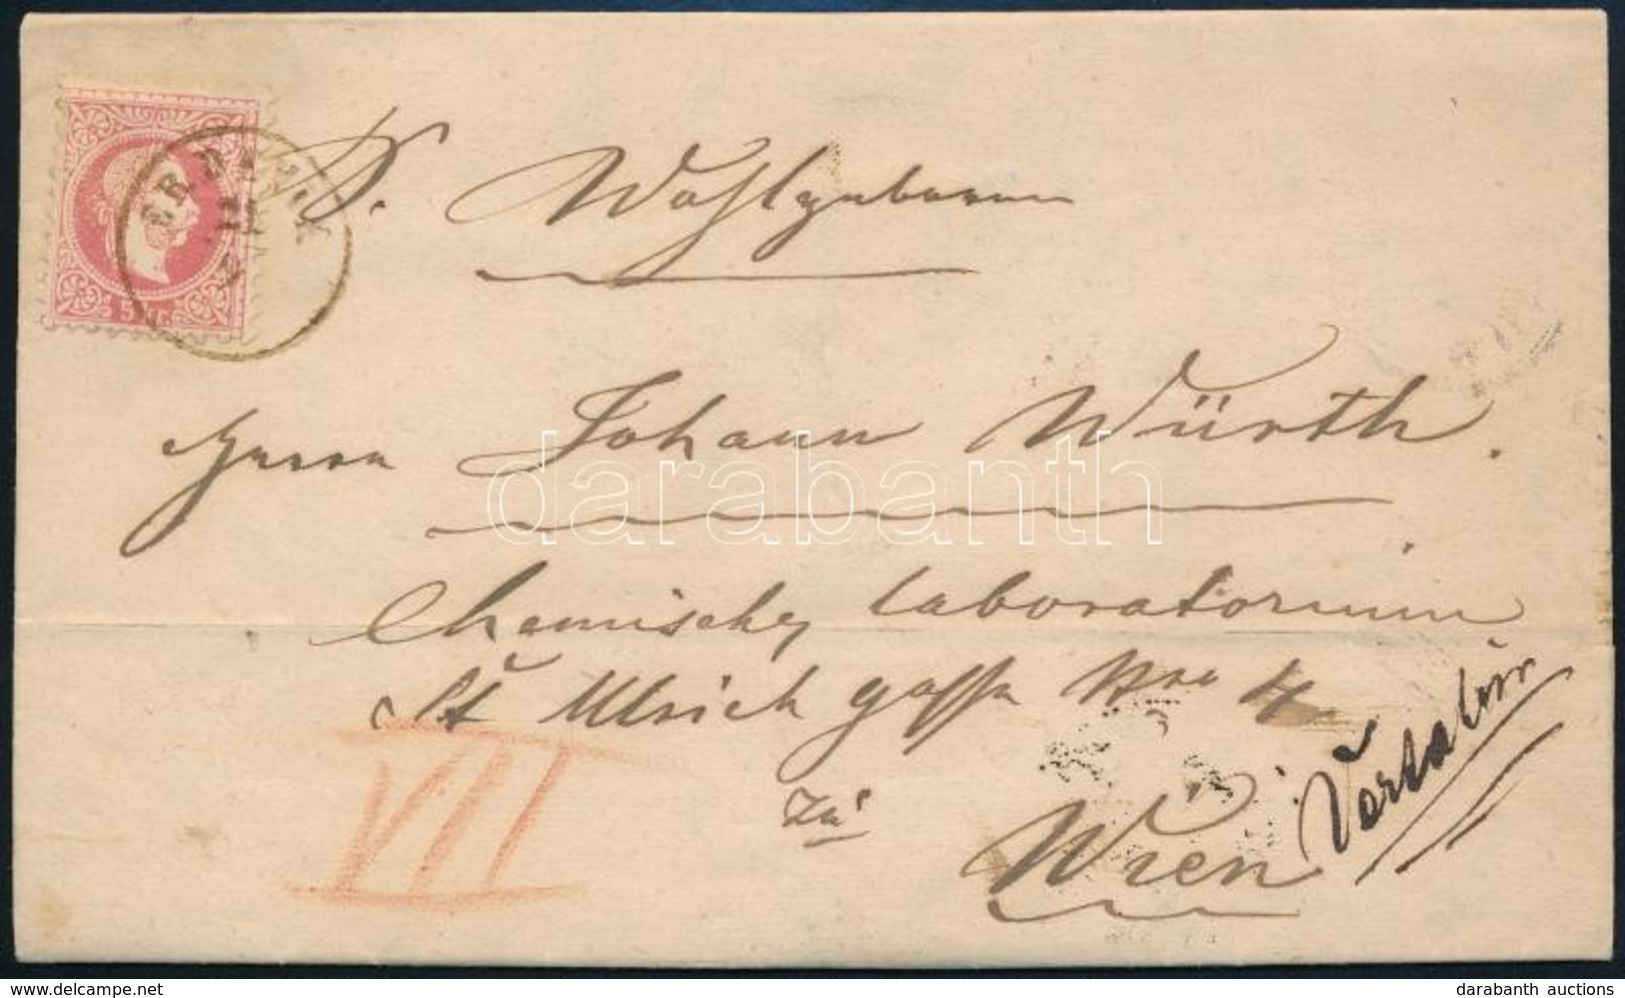 S. Wohlgeboren
Herrn Johann Würth.
Chemisches Laboratorium
St Ulrich gasse Nro 4
zu
Wien
VII
5 kr.
darabanth
www.delcampe.net
darabanth auctions